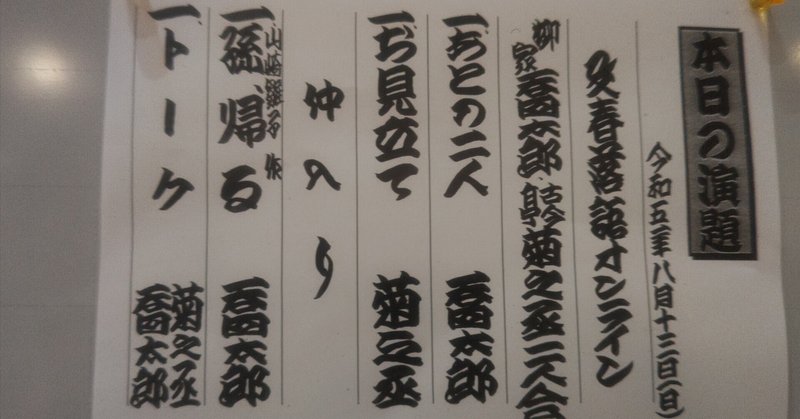 本日の演題
令和五年八月十三日(日)
文春落語オンライン
柳家喬太郎・古今亭菊之丞二人会
一、あとの二人 喬太郎
一、お見立て 菊之丞
仲入り
一、孫、帰る 山崎雛子 作 喬太郎
一、トーク 菊之丞 喬太郎